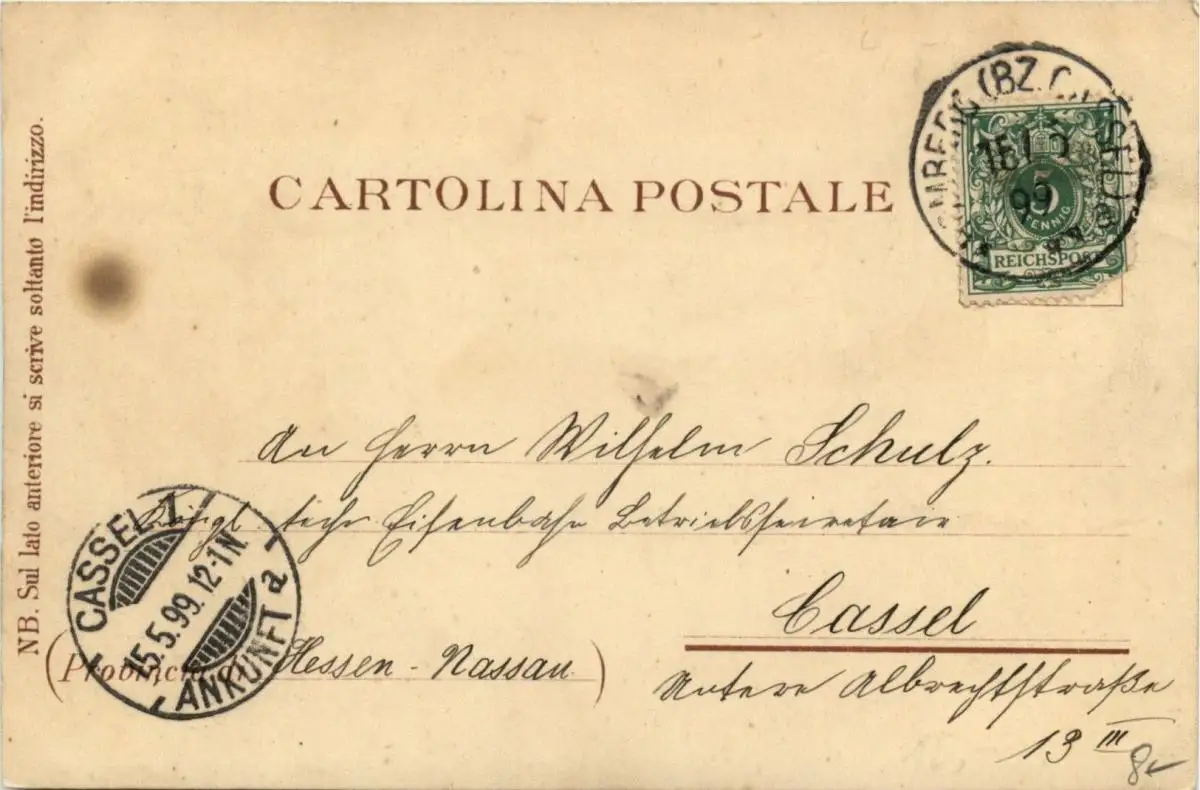 CARTOLINA POSTALE
(BZ. CASSEL)
15/5
99
5
PFENNIG
REICHSPOST
NB. Sul lato anteriore si scrive soltanto l'indirizzo.
An Herrn Wilhelm Schulz.
Königl. techn Eisenbahn Betriebssecretair
Cassel
(Provincia di Hessen-Nassau)
Untere Albrechtstraße
13 III
8
CASSEL 1
15.5.99. 12-1N.
ANKUNFT a